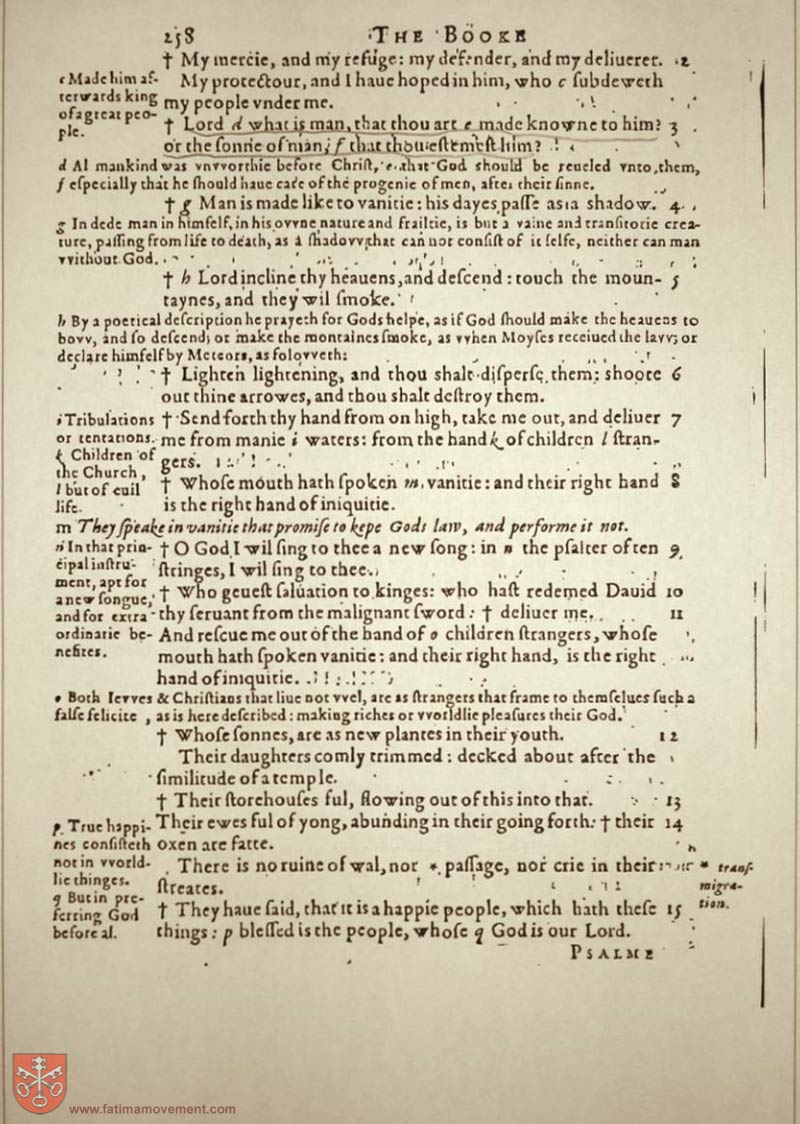 258 THE BOOKE
† My mercie, and my refuge: my defender, and my deliuerer. 2
My protectour, and I haue hoped in him, who c subdeweth
my people vnder me.
c Made him af-
terwards king
of a great peo-
ple.
† Lord d what is man, that thou art e made knowne to him? 3
or the sonne of man, f that thou estemest him?
d Al mankind was vnvvorthie before Christ, e that God should be reueled vnto them,
f especially that he should haue care of the progenie of men, after their sinne.
† g Man is made like to vanitie: his dayes passe as a shadow. 4
g In dede man in himself, in his ovvne nature and frailtie, is but a vaine and transitorie crea-
ture, passing from life to death, as a shadovv that can not consist of it selfe, neither can man
vvithout God.
† h Lord incline thy heauens, and descend: touch the moun- 5
taynes, and they wil smoke.
h By a poetical description he prayeth for Gods helpe, as if God should make the heauens to
bovv, and so descend; or make the montaines smoke, as vvhen Moyses receiued the lavv; or
declare himself by Meteors, as folovveth:
† Lighten lightening, and thou shalt disperse them: shoote 6
out thine arrowes, and thou shalt destroy them.
† Send forth thy hand from on high, take me out, and deliuer 7
me from manie i waters: from the hand k of children l stran-
gers.
i Tribulations
or tentations.
k Children of
the Church,
l but of euil
life.
† Whose mouth hath spoken m vanitie: and their right hand 8
is the right hand of iniquitie.
m They speake in vanitie that promise to kepe Gods law, and performe it not.
† O God I wil sing to thee a new song: in n the psalter of ten 9
stringes, I wil sing to thee.
n In that prin-
cipal instru-
ment, apt for
a new songue,
and for extra
ordinarie be-
nefites.
† Who geuest saluation to kinges: who hast redemed Dauid 10
thy seruant from the malignant sword: † deliuer me. 11
And rescue me out of the hand of o children strangers, whose
mouth hath spoken vanitie: and their right hand, is the right
hand of iniquitie.
o Both Ievves & Christians that liue not vvel, are as strangers that frame to themselues such a
false felicite, as is here described: making riches or vvorldlie pleasures their God.
† Whose sonnes, are as new plantes in their youth. 12
Their daughters comly trimmed: decked about after the
similitude of a temple.
† Their storehouses ful, flowing out of this into that. 13
Their ewes ful of yong, abunding in their going forth: † their 14
oxen are fatte.
p True happi-
nes consisteth
not in vvorld-
lie thinges.
q But in pre-
ferring God
before al.
There is no ruine of wal, nor * passage, nor crie in their
streates.
* trans-
migra-
tion.
† They haue said, that it is a happie people, which hath these 15
things: p blessed is the people, whose q God is our Lord.
PSALME
www.fatimamovement.com